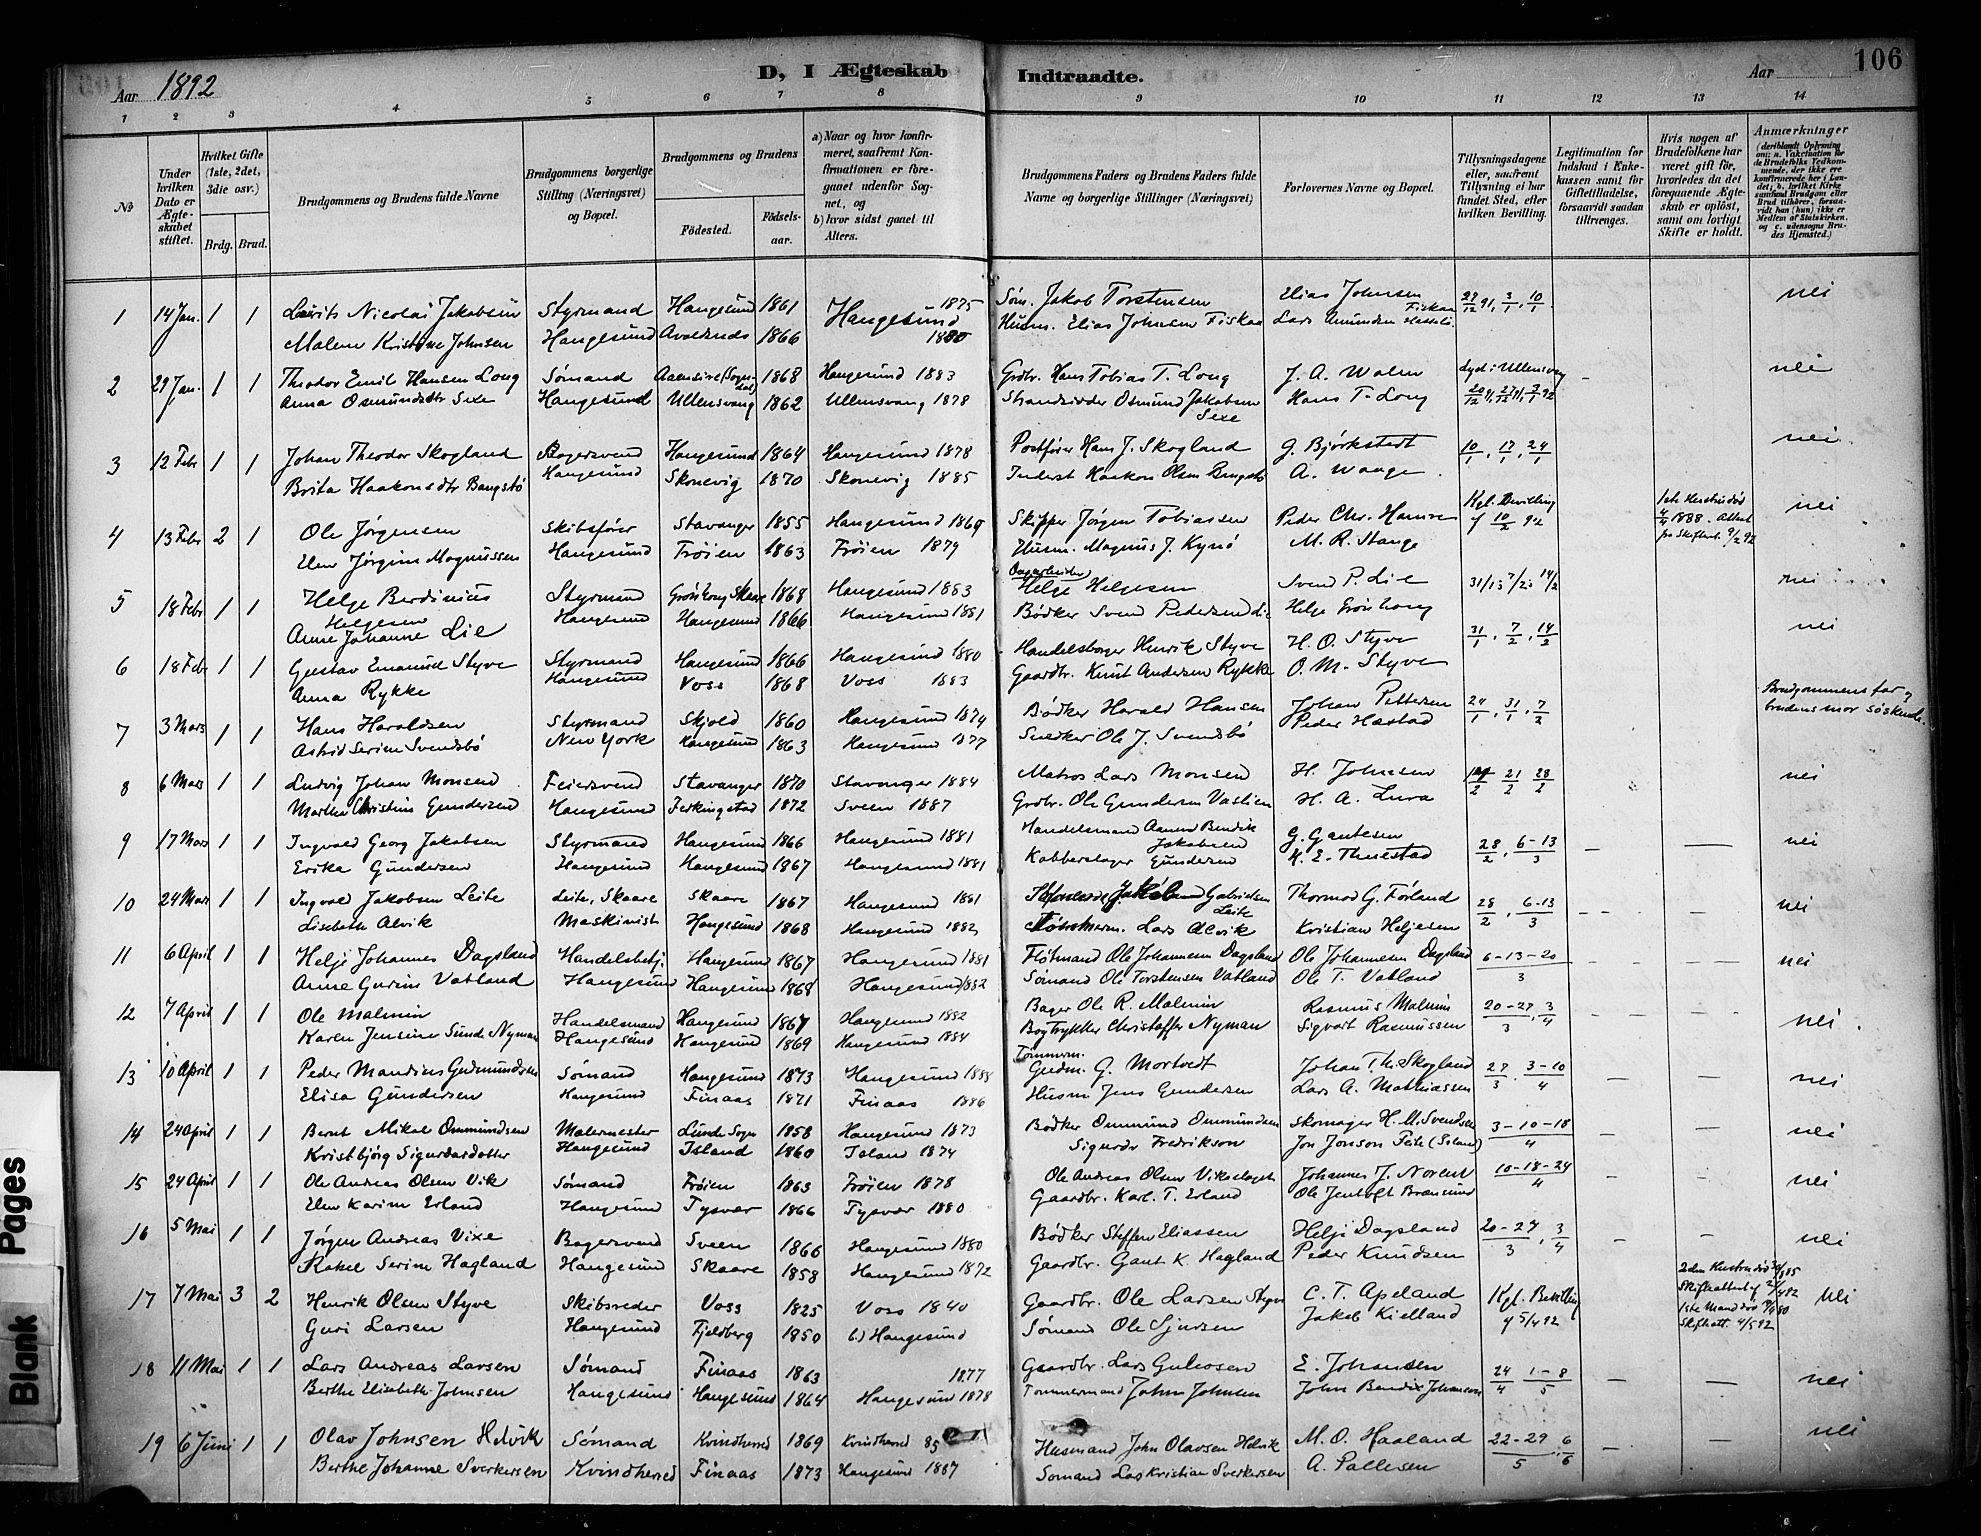 106
Aar 1892
D, I Ægteskab Indtraadte.
Aar
1 2 3 4 5 6 7 8 9 10 11 12 13 14
№
Under hvilken Dato er Ægteskabet stiftet.
Hvilket Gifte (1ste, 2det, 3die osv.)
Brdg. Brud.
Brudgommens og Brudens fulde Navne
Brudgommens borgerlige Stilling (Næringsvei) og Bopæl.
Brudgommens og Brudens
Fødested.
Fødselsaar.
a) Naar og hvor konfirmeret, saafremt Konfirmationen er foregaaet udenfor Sognet, og
b) hvor sidst gaaet til Alters.
Brudgommens Faders og Brudens Faders fulde Navne og borgerlige Stillinger (Næringsvei)
Forlovernes Navne og Bopæl.
Tillysningsdagene eller, saafremt Tillysning ei har fundet Sted, efter hvilken Bevilling.
Legitimation for Indskud i Enkekassen samt for Giftetilladelse, forsaavidt saadan tiltrænges.
Hvis nogen af Brudefolkene har været gift før, hvorledes da det foregaaende Ægteskab er opløst, samt om lovligt Skifte er holdt.
Anmærkninger
1 14 Jan. 1 1 Laurits Nicolai Jakobsen Styrmand Haugesund 1861 1875 Søm. Jakob Torstensen Elias Johnsen Fiskaa 27/12 91, 3/1, 10/1 nei
Malene Kristine Johnsen Haugesund Avaldsnes 1866 Haugesund 1880 Husm. Elias Johnsen Fiskaa Lars Amundsen
2 29 Jan. 1 1 Theodor Emil Hansen Long Sømand Aaensire (Sogndal) 1868 Haugesund 1883 Grdbr. Hans Tobias T. Long J. A. Walen Lyst i Ullensvang - nei
Anna Osmundsdtr Sexe Haugesund Ullensvang 1862 Ullensvang 1878 Strandsidder Osmund Jakobsen Sexe Hans T. Long 20/12 91, 27/12 91, 3/1 92
3 12 Febr 1 1 Johan Theodor Skogland Bagersvend Haugesund 1864 Haugesund 1878 Postfører Hans J. Skogland G. Bjørkstedt 10/1, 17/1, 24/1 nei
Brita Haakonsdtr Bangstø Haugesund Skonevig 1870 Skonevig 1885 Inderst Haakon Olsen A. Waage
4 13 Febr 2 1 Ole Jørgensen Skibsfører Stavanger 1855 Haugesund 1869 Skipper Jørgen Tobiassen Peder Chr. Hamre Kgl. Bevilling af 10/2 92 1ste Hustru død 4/4 1888. Attest fra Skifteret 9/2 92 nei
Elen Jørgine Magnussen Haugesund Frøien 1863 Frøien 1879 Husm. Magnus J. Kynø M. R. Stange
5 18 Febr 1 1 Helge Berdinius Helgesen Styrmand Grønhoug Skaare 1868 Haugesund 1883 Helge Helgesen Svend P. Lie 31/1; 7/2; 14/2 nei
Anne Johanne Lie Haugesund Haugesund 1866 Haugesund 1881 Bødker Svend Pedersen Lie Helge Grønhoug
6 18 Febr 1 1 Gustav Emanuel Styve Styrmand Haugesund 1866 Haugesund 1880 Handelsborger Henrik Styve H. O. Styve 31/1, 7/2, 14/2 nei
Anna Rykke Haugesund Voss 1868 Voss 1883 Gaardbr. Knut Andersen Rykke O. M. Styve
7 3 Mars 1 1 Hans Haraldsen Styrmand Skjold 1860 Haugesund 1874 Bødker Harald Hansen Johan Pettersen 24/1, 31/1, 7/2 Brudgommens far og brudens mor søskende.
Astrid Serine Svendsbø New York Haugesund 1863 Haugesund 1877 Snedker Ole J. Svendsbø Peder Hæstad
8 6 Mars 1 1 Ludvig Johan Monsen Feiersvend Stavanger 1870 Stavanger 1884 Matros Lars Monsen H. Johnsen 14/2 21/2 28/2 nei
Martha Christine Gundersen Haugesund Ferkingstad 1872 Sveen 1887 Grdbr. Ole Gundersen Vastlien H. A. Lura
9 17 Mars 1 1 Ingvald Georg Jakobsen Styrmand Haugesund 1866 Haugesund 1881 Handelsmand Aanen Bendik Jakobsen G. Gautesen 28/2, 6-13/3 - - nei
Erika Gundersen Haugesund Haugesund 1867 Haugesund 1881 Kobberslager Gundersen K. E. Thuestad
10 24 Mars 1 1 Ingvald Jakobsen Leite Leite, Skaare Skaare 1867 Haugesund 1881 Jakob Gabrielsen Leite Thormod G. Førland 28/2, 6-13/3 - - - nei
Lisebeth Alvik Maskinist Haugesund 1868 Haugesund 1882 Lars Alvik Kristian Heljesen
11 6 April 1 1 Helje Johannes Dagsland Handelsbetj. Haugesund 1867 Haugesund 1881 Fløtmand Ole Johannesen Dagsland Ole Johannesen Dagsland 6-13-20/3 - - nei
Anne Gurine Vatland Haugesund Haugesund 1868 Haugesund 1882 Sømand Ole Torstensen Vatland Ole T. Vatland
12 7 April 1 1 Ole Malmin Handelsmand Haugesund 1867 Haugesund 1882 Bager Ole R. Malmin Rasmus Malmin 20-27/3, 3/4 - - - nei.
Karen Jensine Sunde Nyman Haugesund Haugesund 1869 Haugesund 1884 Bogtrykker Christoffer Nyman Sigvart Rasmussen
13 10 April 1 1 Peder Mandius Gudmundsen Sømand Haugesund 1873 Haugesund 1888 Tømmerm. Gudm. G. Mortvedt Johan Th. Skogland 27/3, 3-10/4 - - nei
Elisa Gundersen Haugesund Finaas 1871 Finaas 1886 Husm Jens Gundersen Lars A. Mathiassen
14 24 April 1 1 Bernt Mikal Ommundsen Malermester Lunde Sogn 1858 Haugesund 1873 Bødker Ommund Ommundsen Skomager H. M. Svendsen 3-10-18/4 - - nei
Kristbjørg Sigurdardotter Haugesund Island 1860 Island 1874 Sigurdr Fredrikson Jon Jonson (Island)
15 24 April 1 1 Ole Andreas Olsen Vik Sømand Frøien 1863 Frøien 1878 Ole Andreas Olsen Johannes J. Noreui 10-18-24/4 - - nei
Elen Karine Erland Haugesund Tysvær 1866 Tysvær 1880 Gaardbr. Karl. T. Erland Ole Jentoft Brænsund
16 5 Mai 1 1 Jørgen Andreas Vixe Bagersvend Sveen 1866 Haugesund 1880 Bødker Steffen Eliassen Helje Dagsland 20-27/3, 3/4 - - nei
Rakel Serine Hagland Haugesund Skaare 1858 Haugesund 1872 Gaardbr. Gaut K. Hagland Peder Knudsen
17 7 Mai 3 2 Henrik Olsen Styve Skibsreder Voss 1825 Voss 1840 Gaardbr. Ole Larsen Styve C. T. Apeland Kgl. Bevilling af 5/4 92 nei
Guri Larsen Haugesund Fjeldberg 1850 b.) Haugesund Sømand Ole Sjursen Jakob Kielland
18 11 Mai 1 1 Lars Andreas Larsen Sømand Finaas 1863 1877 Gaardbr. Lars Guleosen E. Johansen 24/4 1-8/5 - - nei
Berthe Elisabeth Johnsen Haugesund Haugesund 1864 Haugesund 1878 Tømmermand John Johnsen John Bendix Johansen
19 6 Juni 1 1 Olav Johnsen Helvik Sømand Kvindherred 1869 Kvindherred 85 Husmand John Olavsen Helvik M. O. Haaland 22-29/5 6/6 - - nei
Berthe Johanne Sverkersen Kvindherred Finaas 1873 Haugesund 1887 Sømand Lars Kristian Sverkersen A. Pallesen
Blank Pages